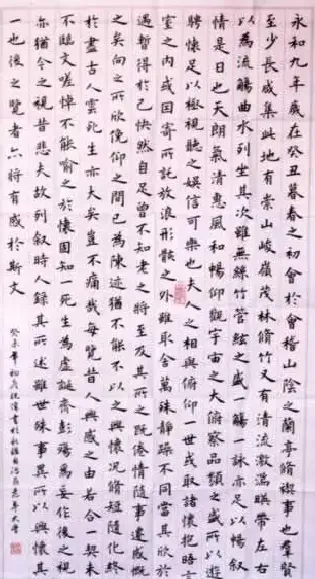 永和九年歲在癸丑暮春之初會於會稽山陰之蘭亭脩禊事也羣賢
至少長咸集此地有崇山峻嶺茂林脩竹又有清流激湍暎帶左右
以為流觴曲水列坐其次雖無絲竹管絃之盛一觴一詠亦足以暢叙
情是日也天朗氣清惠風和暢仰觀宇宙之大俯察品類之盛所以遊
騁懷足以極視聽之娛信可樂也夫人之相與俯仰一世或取諸懷抱晤言
室之內或因寄所託放浪形骸之外雖取舍萬殊靜躁不同當其欣於
遇暫得於己快然自足曾不知老之將至及其所之既倦情隨事遷感慨
之矣向之所欣俛仰之間已為陳迹猶不能不以之興懷況脩短隨化終
於盡古人雲死生亦大矣豈不痛哉每覽昔人興感之由若合一契未
不臨文嗟悼不能喻之於懷固知一死生為虛誕齊彭殤為妄作後之視
亦猶今之視昔悲夫故列叙時人錄其所述雖世殊事異所以興懷其
一也後之覽者亦將有感於斯文
癸未年初夏